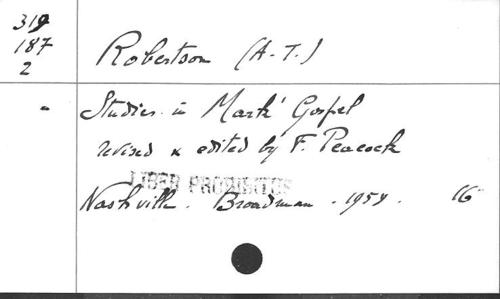 319
187
2
Robertson (A.T.)
Studies in Mark' Gospel
revised & edited by F. Peacock
LIBER PROHIBITUS
Nashville. Broadman. 1958. 16